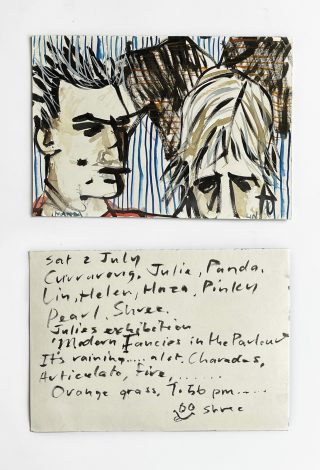 Sat 2 July
Currarong, Julie, Panda,
Lin, Helen, Haza, Pinky
Pearl, Shree.
Julies exhibition
"Modern Fancies in the Parlour"
It's raining..... alot, Charades,
Articulate, Fire, .......
Orange grass, 7.56 pm.....
Shree